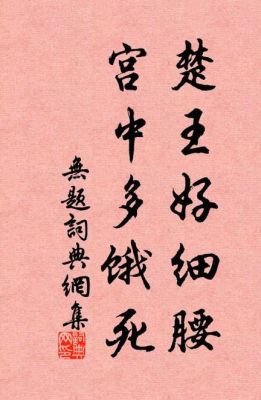 楚王好细腰
宫中多饿死
無题詞典網集